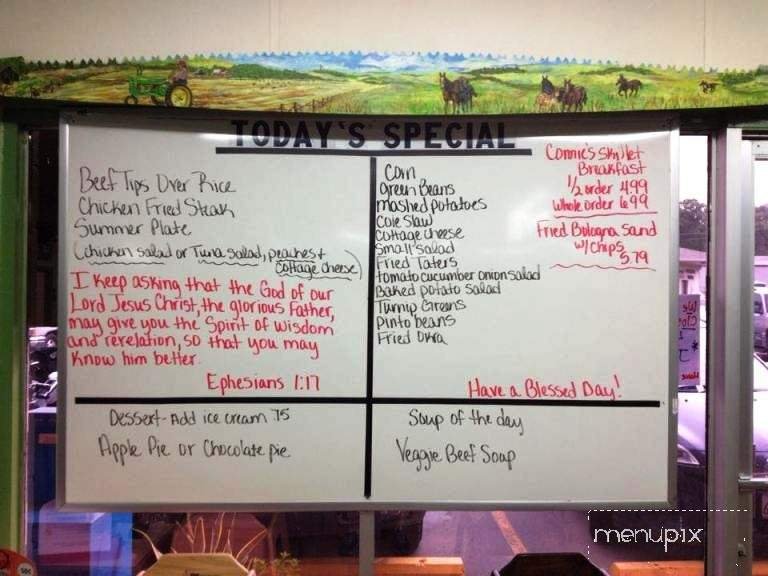 TODAY'S SPECIAL
Beef Tips Over Rice
Chicken Fried Steak
Summer Plate
(chicken salad or Tuna salad, peaches +
cottage cheese)
I keep asking that the God of our
Lord Jesus Christ, the glorious Father,
may give you the Spirit of wisdom
and revelation, so that you may
know him better.
Ephesians 1:17
Corn
Green Beans
mashed potatoes
Cole Slaw
Cottage cheese
Small salad
Fried Taters
tomato cucumber onion salad
Baked potato salad
Turnip Greens
Pinto beans
Fried Okra
Connie's Skillet
Breakfast
1/2 order 4.99
Whole order 6.99
Fried Bologna Sand
w/ Chips
5.79
Have a Blessed Day!
Dessert - Add ice cream .75
Apple Pie or Chocolate pie
Soup of the day
Veggie Beef Soup
menupix